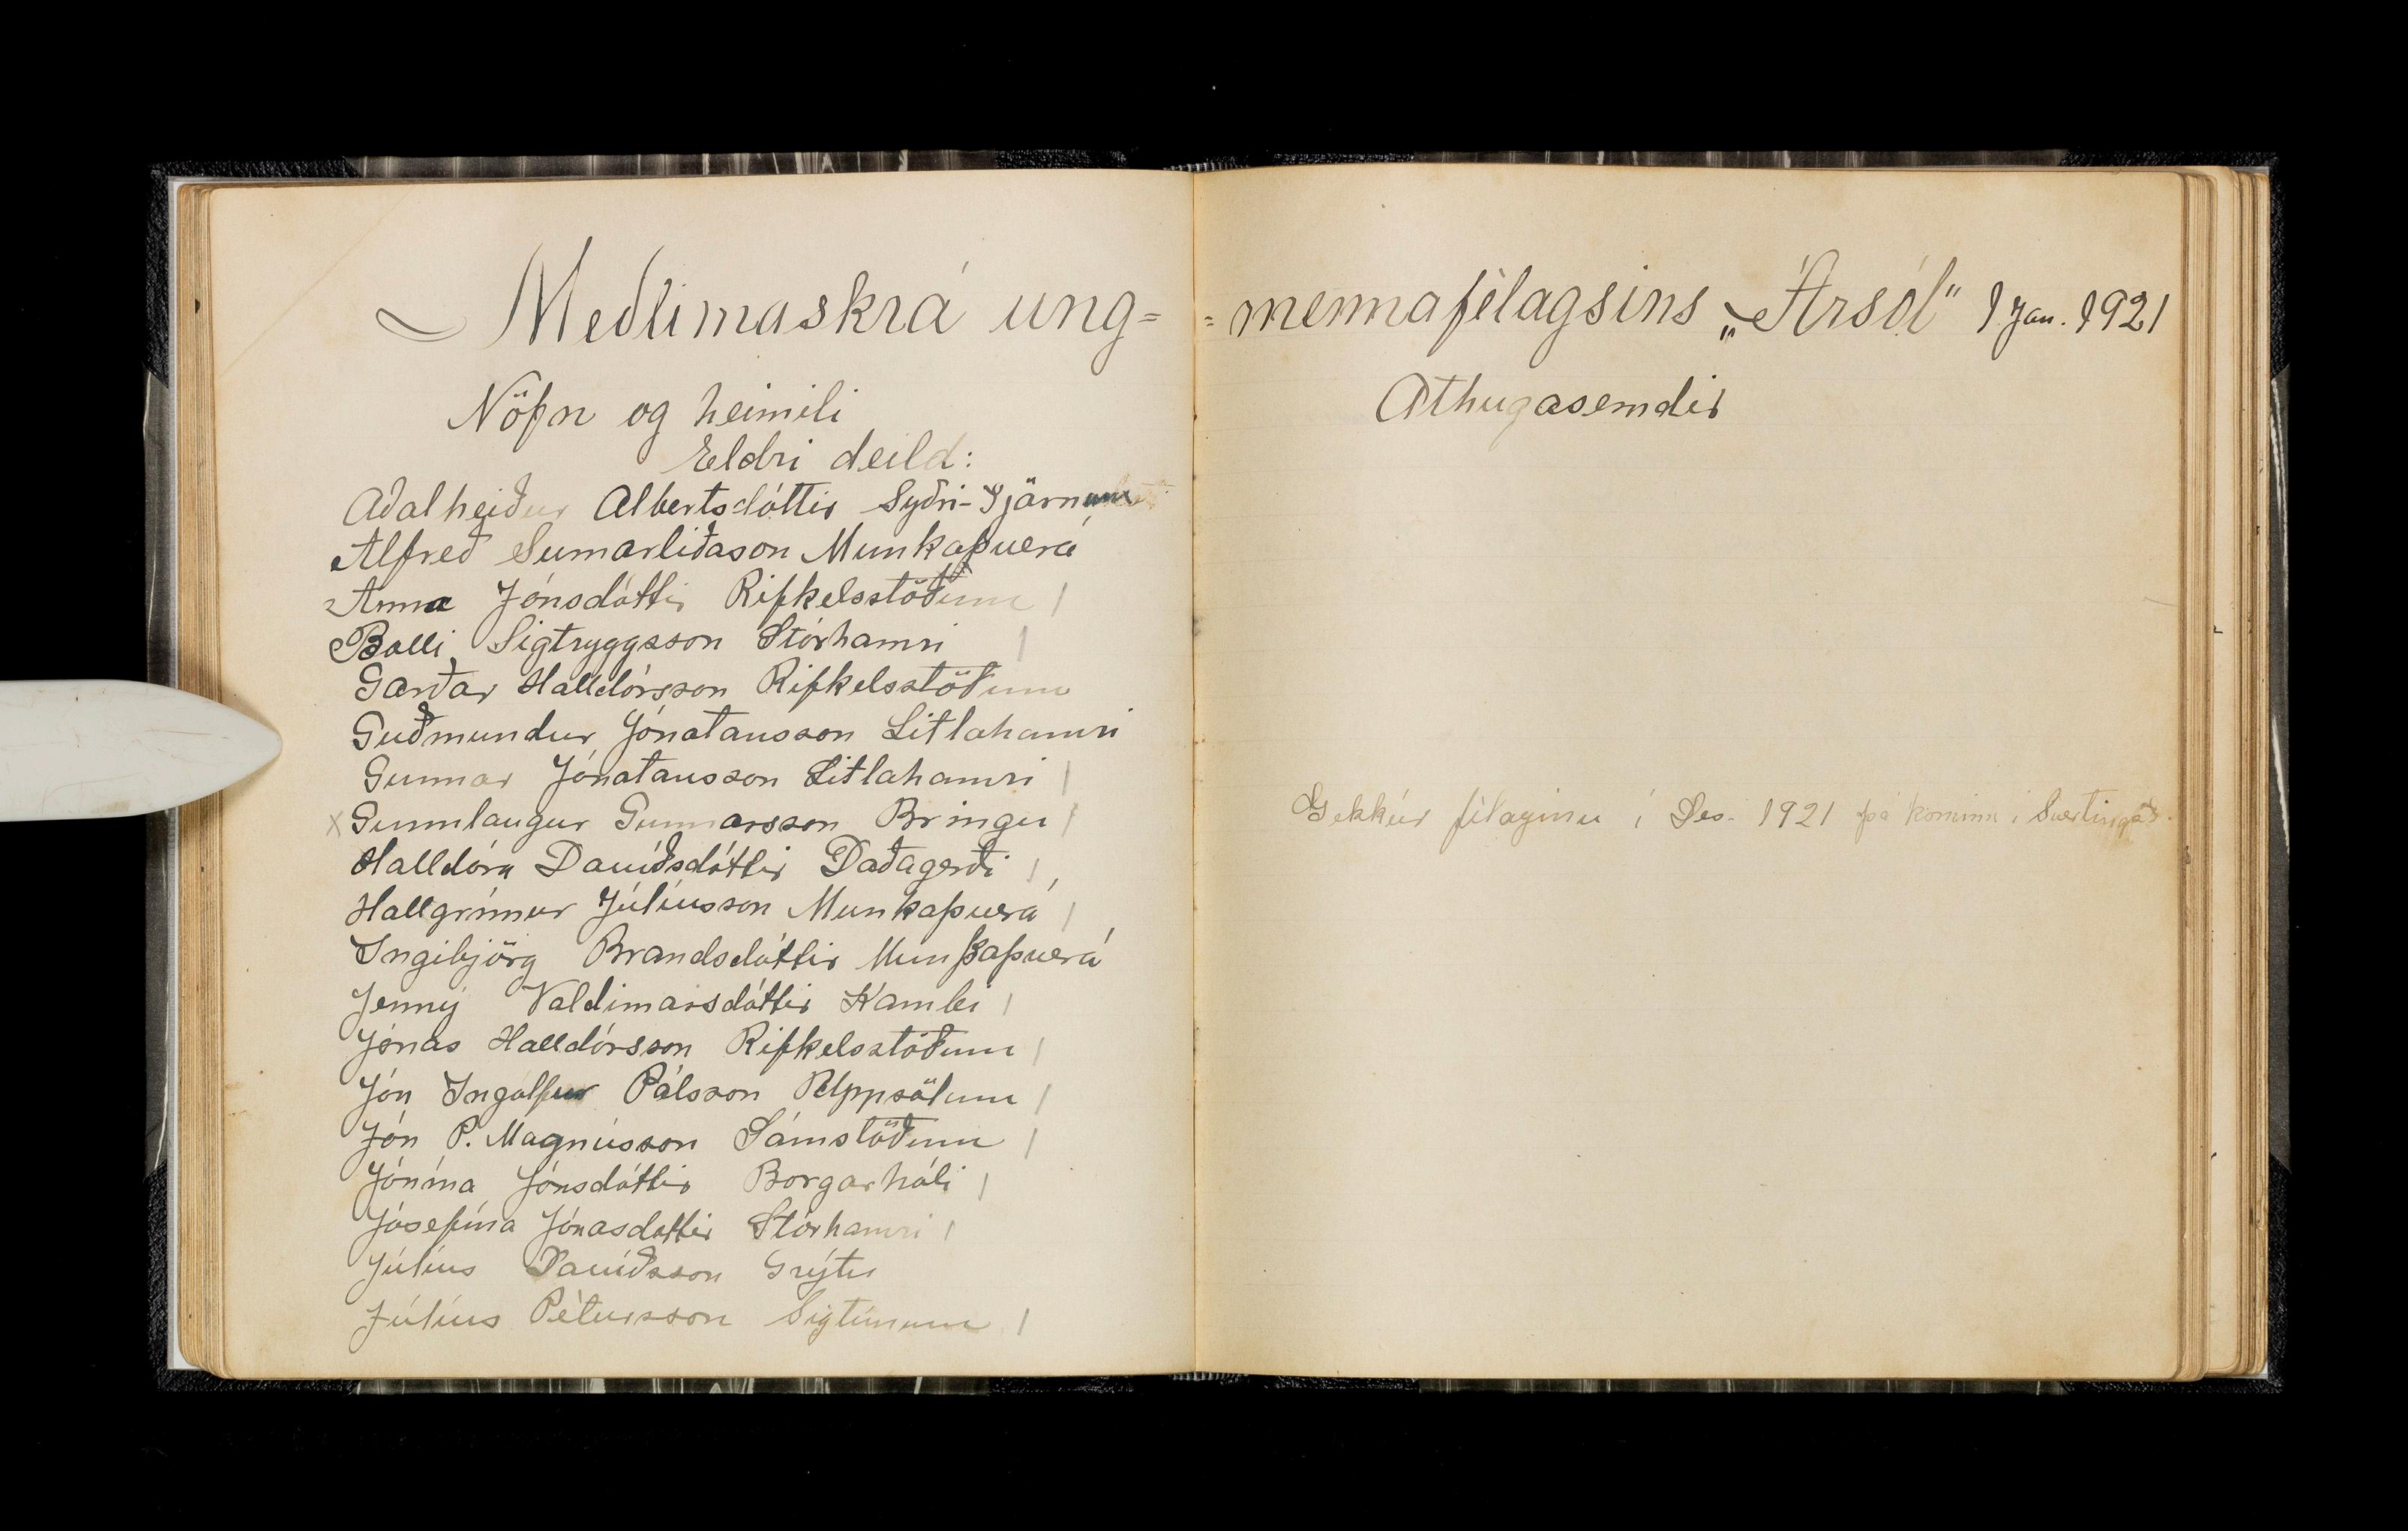 Meðlimaskrá ung=
=mennafélagsins „Ársól" 1 Jan. 1921
Nöfn og heimili
Eldri deild:
Aðalheiður Albertsdóttir Syðri-Tjarnum
Alfreð Sumarliðason Munkaþverá
Anna Jónsdóttir Rifkelsstöðum /
Balli Sigtryggsson Stórhamri /
Garðar Halldórsson Rifkelsstöðum
Guðmundur Jónatansson Litlahamri
Gunnar Jónatansson Litlahamri /
x Gunnlaugur Gunnarsson Bringu /
Halldóra Davíðsdóttir Daðagerði /
Hallgrímur Júlíusson Munkaþverá /
Ingibjörg Brandsdóttir Munkaþverá
Jenný Valdimarsdóttir Kambi /
Jónas Halldórsson Rifkelsstöðum /
Jón Ingólfur Pálsson Uppsölum /
Jón P. Magnússon Sámstöðum /
Jónína Jónsdóttir Borgarhóli /
Jósefína Jónasdóttir Stórhamri /
Júlíus Davíðsson Grýtu
Júlíus Pétursson Sigtúnum /
Athugasemdir
Gekk úr félaginu í Des. 1921 þá kominn í